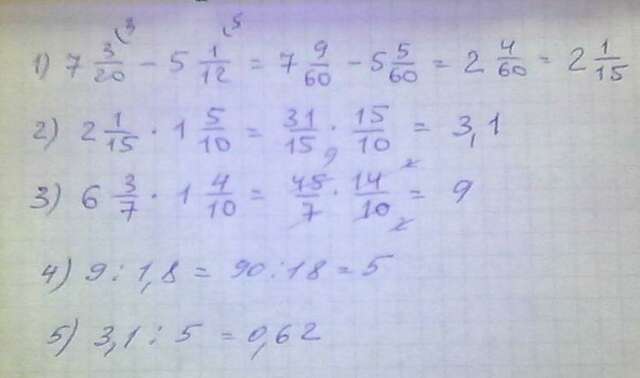 1) 7 3/20 (3 - 5 1/12 (5 = 7 9/60 - 5 5/60 = 2 4/60 = 2 1/15
2) 2 1/15 · 1 5/10 = 31/15 · 15/10 = 3,1
3) 6 3/7 · 1 4/10 = 45/7 · 14/10 = 9
4) 9 : 1,8 = 90 : 18 = 5
5) 3,1 : 5 = 0,62